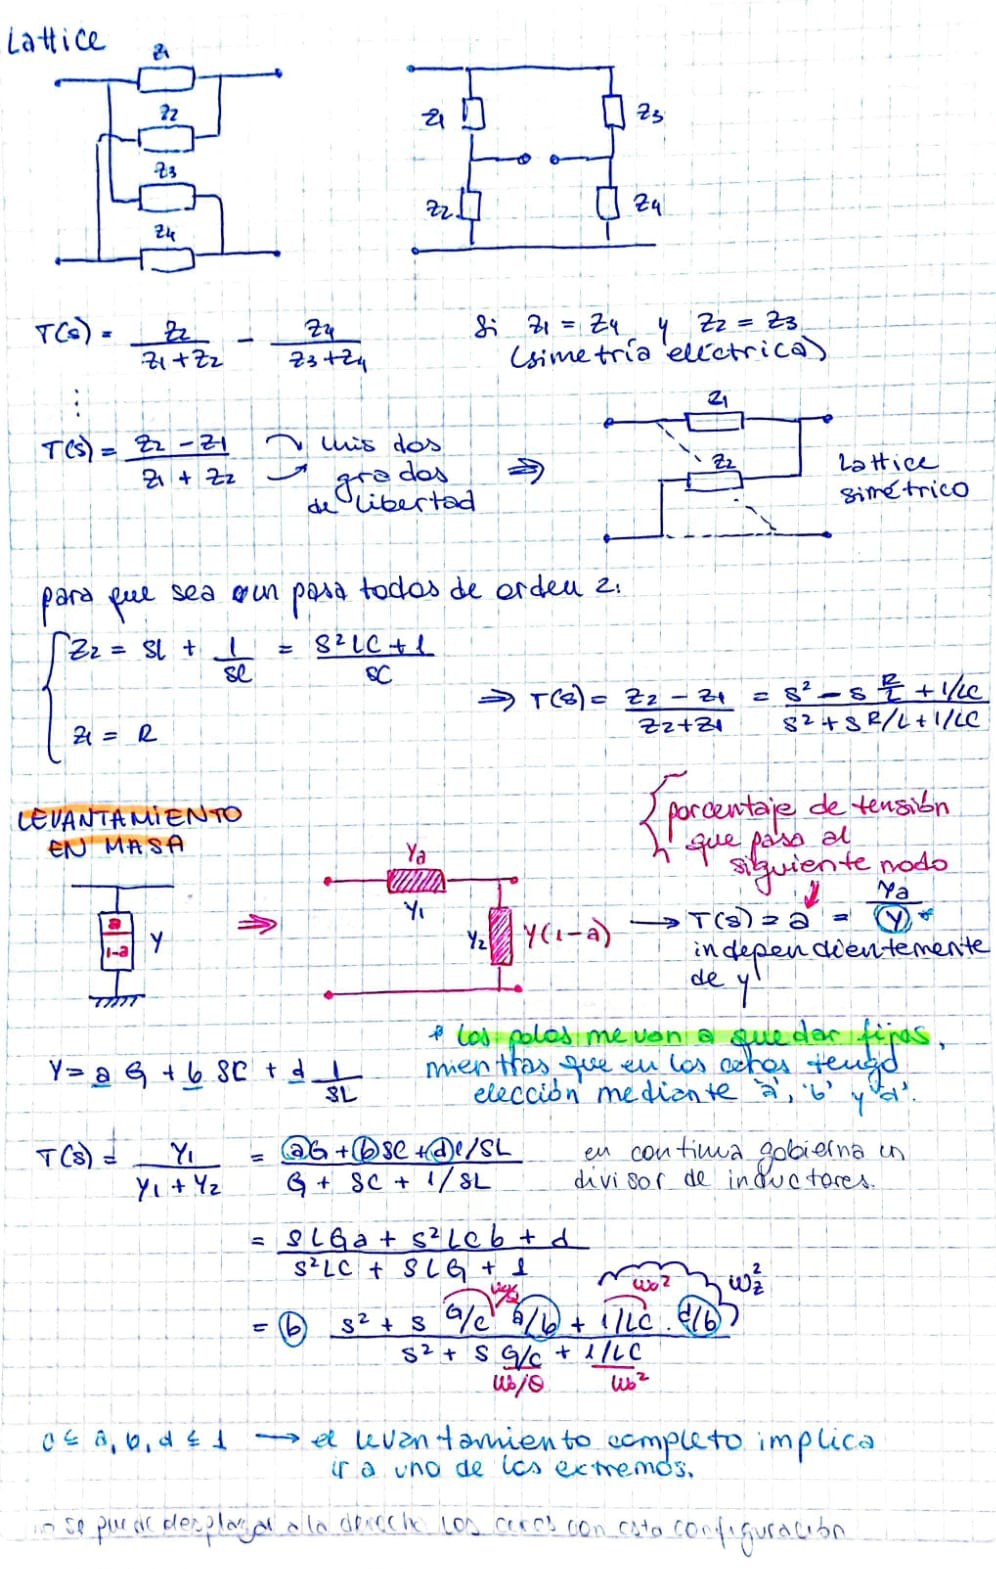 Lattice
Z1
Z2
Z3
Z4
Z1
Z3
Z2
Z4
T(s) = Z2 / (Z1+Z2) - Z4 / (Z3+Z4)
Si Z1 = Z4 y Z2 = Z3
(simetría eléctrica)
⋮
T(s) = (Z2 - Z1) / (Z1 + Z2)
mis dos
grados
de libertad
⇒
Z1
Z2
Lattice
simétrico
para que sea un pasa todos de orden 2:
Z2 = SL + 1/SC = (S²LC + 1) / SC
Z1 = R
⇒ T(s) = (Z2 - Z1) / (Z2+Z1) = (S² - S R/L + 1/LC) / (S² + S R/L + 1/LC)
LEVANTAMIENTO
EN MASA
porcentaje de tensión
que pasa al
siguiente nodo
a
1-a
Y
⇒
Ya
Y1
Y2
Y(1-a)
→ T(s) = a = Ya / Y *
independientemente
de y
* Los polos me van a quedar fijos,
mientras que en los ceros tengo
elección mediante 'a', 'b' y 'd'.
Y = a G + b SC + d 1/SL
T(s) = Y1 / (Y1 + Y2) = (aG + bSC + d1/SL) / (G + SC + 1/SL)
en continua gobierna un
divisor de inductores.
= (SLGa + S²LCb + d) / (S²LC + SLG + 1)
ω0²
ωz²
= b (S² + S G/C a/b + 1/LC . d/b) / (S² + S G/C + 1/LC)
ω0/Q
ω0²
0 ≤ a, b, d ≤ 1 → el levantamiento completo implica
ir a uno de los extremos.
no se puede desplazar a la derecha los ceros con esta configuración